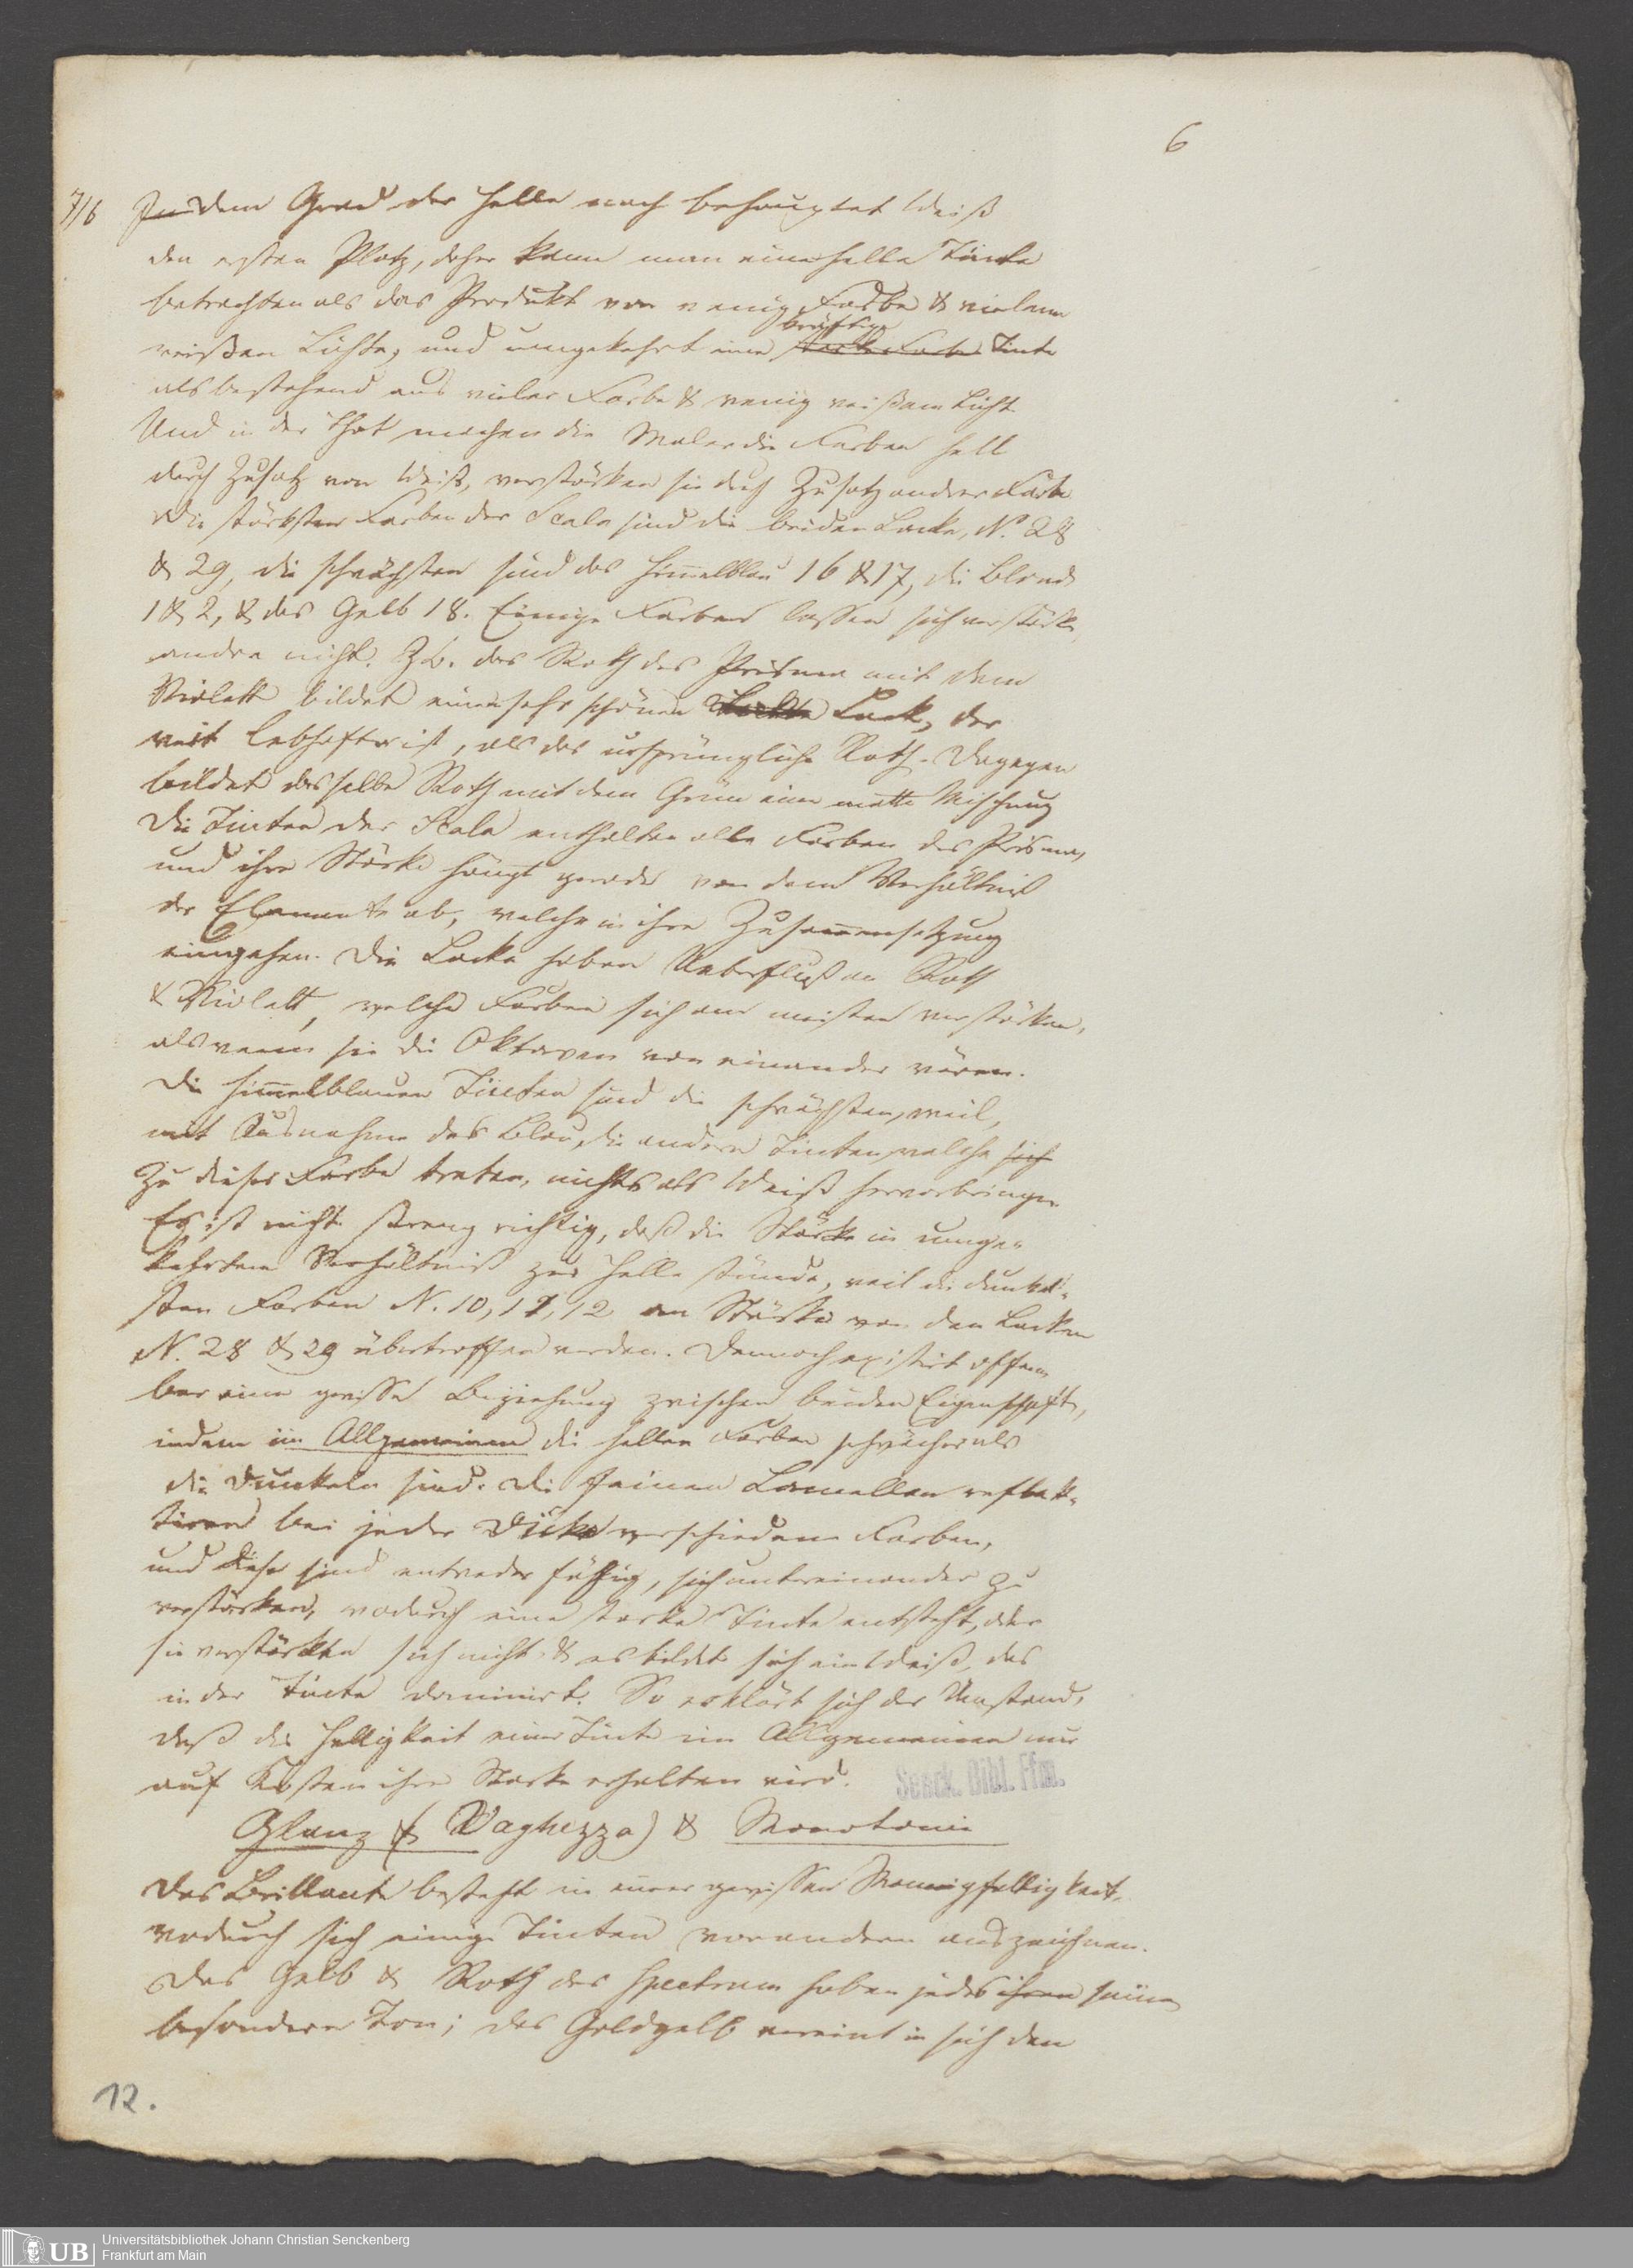 6
7/6 In dem Grad der Helle nach behauptet Weiß
den ersten Platz, daher kann man eine helle Tinte
betrachten als das Produkt von wenig Farbe & vielem
kräftige
weißen Lichte, und umgekehrt eine starke Farbe Tinte
als bestehend aus vieler Farbe & wenig weißem Licht
Und in der That machen die Maler die Farben hell
durch Zusatz von Weiß, verstärken sie durch Zusatz andrer Farbe
Die stärksten Farben der Scala sind die beiden Lacke, N. 28
& 29, die schwächsten sind das Himmelblau 16 & 17, die Blond
1 & 2, & das Gelb 18. Einige Farben lassen sich verstärken
andre nicht. Z.b. das Roth des Prisma mit dem
Violett bildet einen sehr schönen Lack, der
weit lebhafter ist, als das ursprüngliche Roth. Dagegen
bildet dasselbe Roth mit dem Grün eine matte Mischung
Die Tinten der Scala enthalten alle Farben des Prisma,
und ihre Stärke hängt gerade von dem Verhältniß
der Elemente ab, welche in ihre Zusammensetzung
eingehen. Die Lacke haben Ueberfluß an Roth
& Violett, welche Farben sich am meisten verstärken,
als wenn sie die Oktaven von einander wären.
Die himmelblauen Tinten sind die schwächsten, weil,
mit Ausnahme des Blau, die andern Tinten, welche sich
zu dieser Farbe treten, nichts als Weiß hervorbringen
Es ist nicht streng richtig, daß die Stärke in umge-
kehrtem Verhältniß zur Helle stünde, weil die dunkel-
sten Farben N. 10, 11, 12 an Stärke von den Lacken
N. 28 & 29 übertroffen werden. Dennoch existirt offen
bar eine gewisse Beziehung zwischen beiden Eigenschaften,
indem im Allgemeinen die hellen Farben schwächer als
die dunkeln sind. Die feinen Lamellen reflek-
tiren bei jeder Dicke verschiedene Farben,
und diese sind entweder fähig, sich untereinander zu
verstärken, wodurch eine starke Tinte entsteht, oder
sie verstärken sich nicht & es bildet sich ein Weiß, das
in der Tinte dominirt. So erklärt sich der Umstand,
daß die Helligkeit einer Tinte im Allgemeinen nur
auf Kosten ihrer Stärke erhalten wird.
Senck. Bibl. Ffm.
Glanz (Vaghezza) & Monotonie
Das Brillante besteht in einer gewissen Mannigfaltigkeit,
wodurch sich einige Tinten vor andern auszeichnen.
Das Gelb & Roth des Spectrum haben jedes ihren seinen
besondern Ton; das Goldgelb vereint in sich den
12.
UB Universitätsbibliothek Johann Christian Senckenberg
Frankfurt am Main